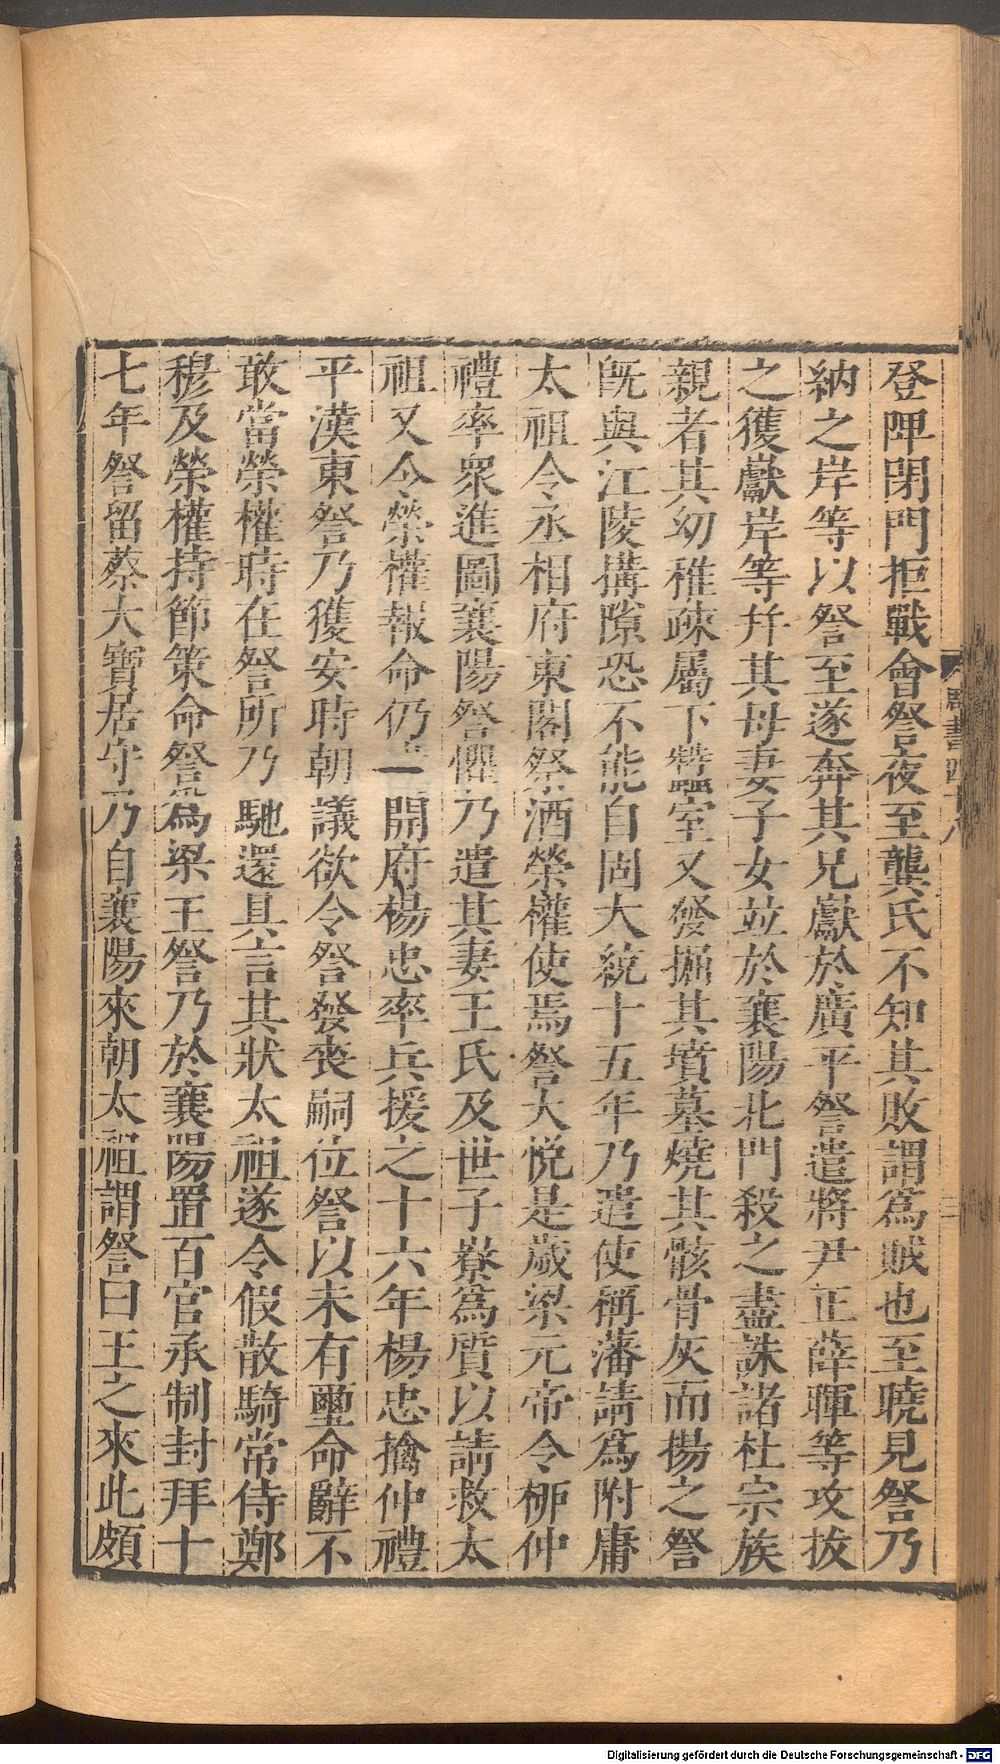 登陴閉門拒戰會詧夜至龔氏不知其敗謂爲賊也至曉見詧乃
納之岸等以詧至遂奔其兄巘於廣平詧遣將尹正薛暉等攻拔
之獲巘岸等并其母妻子女並於襄陽北門殺之盡誅諸杜宗族
親者其幼稚疎屬下蠶室又發掘其墳墓燒其骸骨灰而揚之詧
旣與江陵搆隙恐不能自固大統十五年乃遣使稱藩請爲附庸
太祖令丞相府東閤祭酒榮權使焉詧大悅是歲梁元帝令柳仲
禮率衆進圖襄陽詧懼乃遣其妻王氏及世子嶚爲質以請救太
祖又令榮權報命仍 開府楊忠率兵援之十六年楊忠擒仲禮
平漢東詧乃獲安時朝議欲令詧發喪嗣位詧以未有璽命辭不
敢當榮權時在詧所乃馳還具言其狀太祖遂令假散騎常侍鄭
穆及榮權持節策命詧爲梁王詧乃於襄陽置百官承制封拜十
七年詧留蔡大寶居守乃自襄陽來朝太祖謂詧曰王之來此頗
周書四十八
二
Digitalisierung gefördert durch die Deutsche Forschungsgemeinschaft - DFG